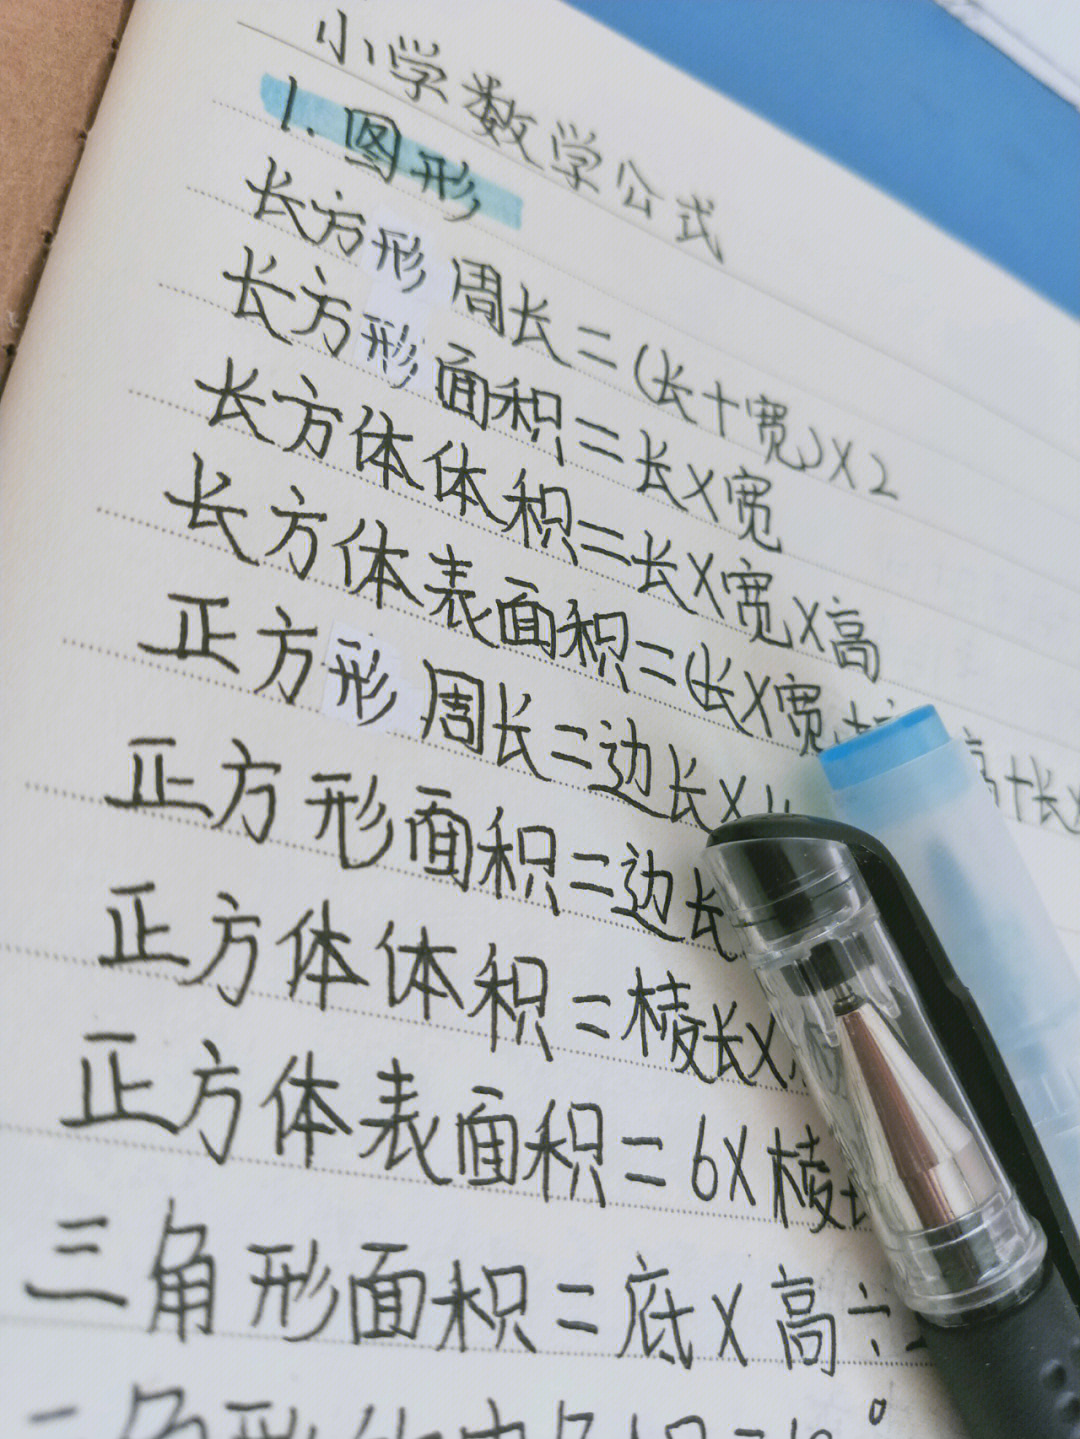 小学数学公式
1.图形
长方形周长=(长+宽)×2
长方形面积=长×宽
长方体体积=长×宽×高
长方体表面积=(长×宽+ 高+长×
正方形周长=边长×
正方形面积=边长
正方体体积=棱长×
正方体表面积=6×棱
三角形面积=底×高÷